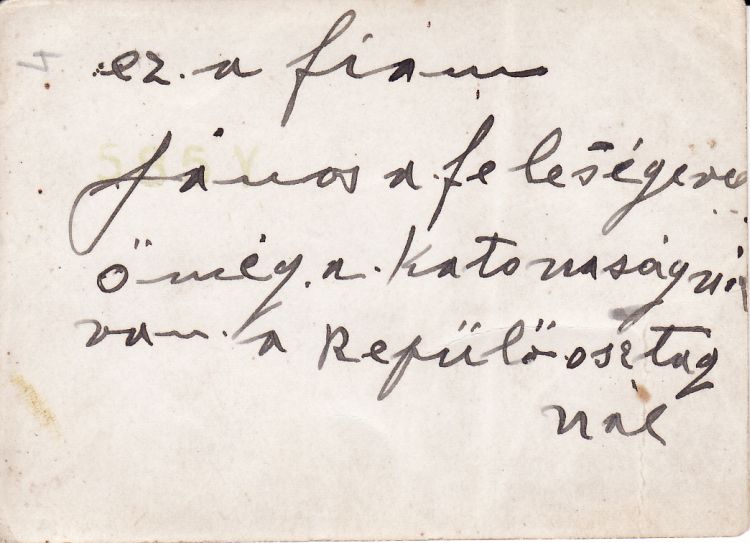 ez. a fiam
János a feleségevel
ő még. a. katonaságná
van. a Repülőosztag
nál